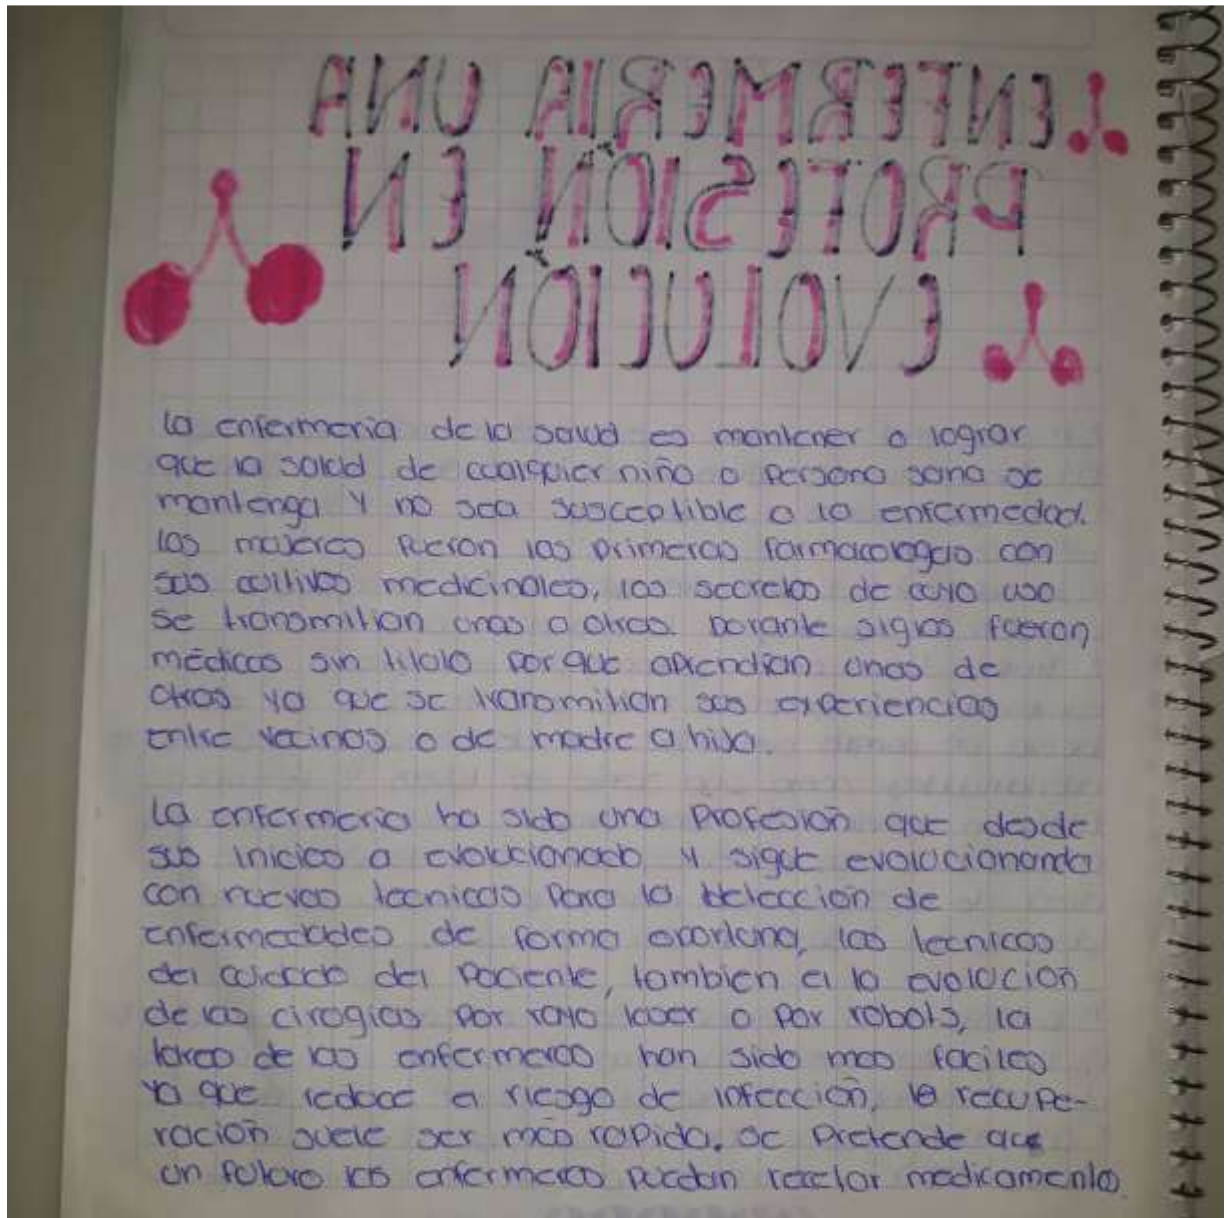 ENFERMERIA UNA
PROFESIÓN EN
EVOLUCIÓN
La enfermeria de la salud es mantener o lograr
que la salud de cualquier niño o persona sana se
mantenga y no sea susceptible a la enfermedad.
las mujeres fueron las primeras farmacologas con
sus cultivos medicinales, los secretos de cuyo uso
se transmitian unas a otras. Durante siglos fueron
médicas sin titulo porque aprendian unas de
otras ya que se transmitian sus experiencias
entre vecinas o de madre a hija.
La enfermeria ha sido una Profesión que desde
sus inicios a evolucionado y sigue evolucionando
con nuevas tecnicas para la detección de
enfermedades de forma oportuna, las tecnicas
del cuidado del Paciente, tambien el la evolución
de las cirugias por rayo laser o por robots, la
tarea de las enfermeras han sido mas faciles
ya que reduce el riesgo de infección, la recupe-
ración suele ser más rapida. se Pretende que
un futuro las enfermeras puedan recetar medicamentos.